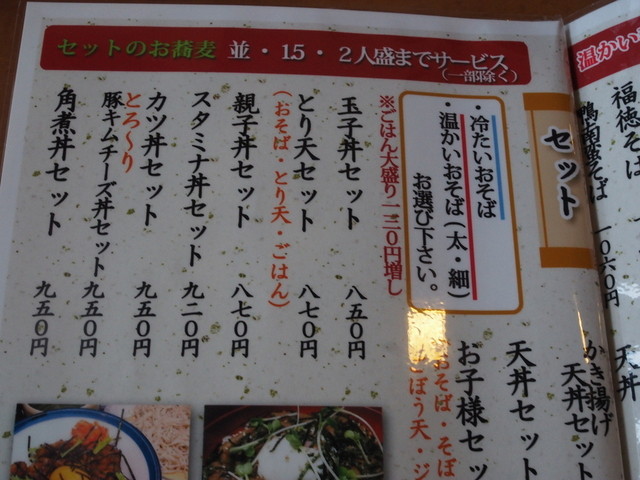 セットのお蕎麦 並・1.5・2人盛までサービス
(一部除く)
温かい
福徳そば
鴨南蛮そば 一〇六〇円
天丼
セット
・冷たいおそば
・温かいおそば(太・細)
お選び下さい。
※ごはん大盛り一三〇円増し
玉子丼セット 八五〇円
とり天セット 八七〇円
(おそば・とり天・ごはん)
親子丼セット 八七〇円
スタミナ丼セット 九二〇円
カツ丼セット 九五〇円
とろ~り
豚キムチーズ丼セット 九五〇円
角煮丼セット 九五〇円
かき揚げ
天丼セット
天丼セット
お子様セッ
おそば・そぼ
ごぼう天・ジ